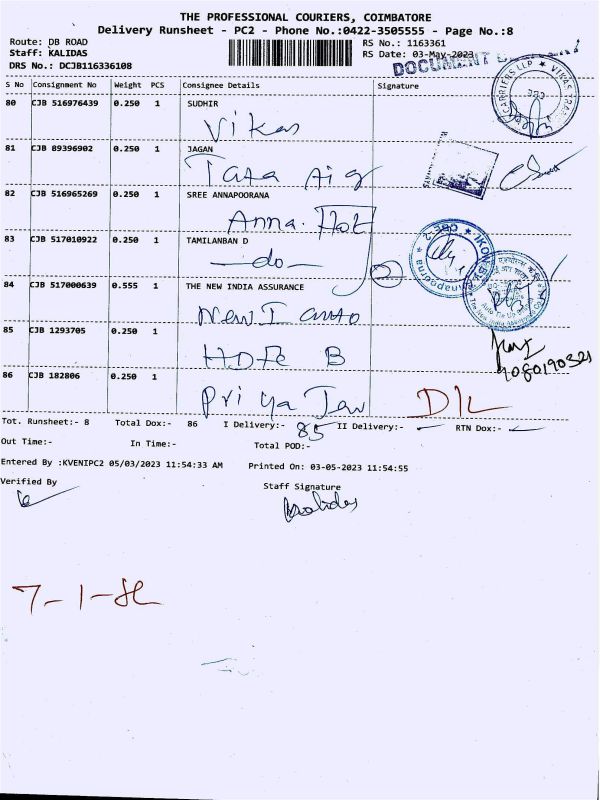 THE PROFESSIONAL COURIERS, COIMBATORE
Delivery Runsheet - PC2 - Phone No.:0422-3505555 - Page No.:8
Route: DB ROAD
RS No.: 1163361
Staff: KALIDAS
RS Date: 03-May-2023
DRS No.: DCJB116336108
DOCUMENT
S No Consignment No Weight PCS Consignee Details Signature
80 CJB 516976439 0.250 1 SUDHIR
Vikas
81 CJB 89396902 0.250 1 JAGAN
Tata Aig
82 CJB 516965269 0.250 1 SREE ANNAPOORANA
Anna. Hot
83 CJB 517010922 0.250 1 TAMILANBAN D
-do-
84 CJB 517000639 0.555 1 THE NEW INDIA ASSURANCE
New I auto
85 CJB 1293705 0.250 1
HDFC B
9080190321
86 CJB 182806 0.250 1
Priya Jew
D/L
Tot. Runsheet:- 8 Total Dox:- 86 I Delivery:- 85 II Delivery:- RTN Dox:-
Out Time:- In Time:- Total POD:-
Entered By :KVENIPC2 05/03/2023 11:54:33 AM Printed On: 03-05-2023 11:54:55
Verified By Staff Signature
Kalidas